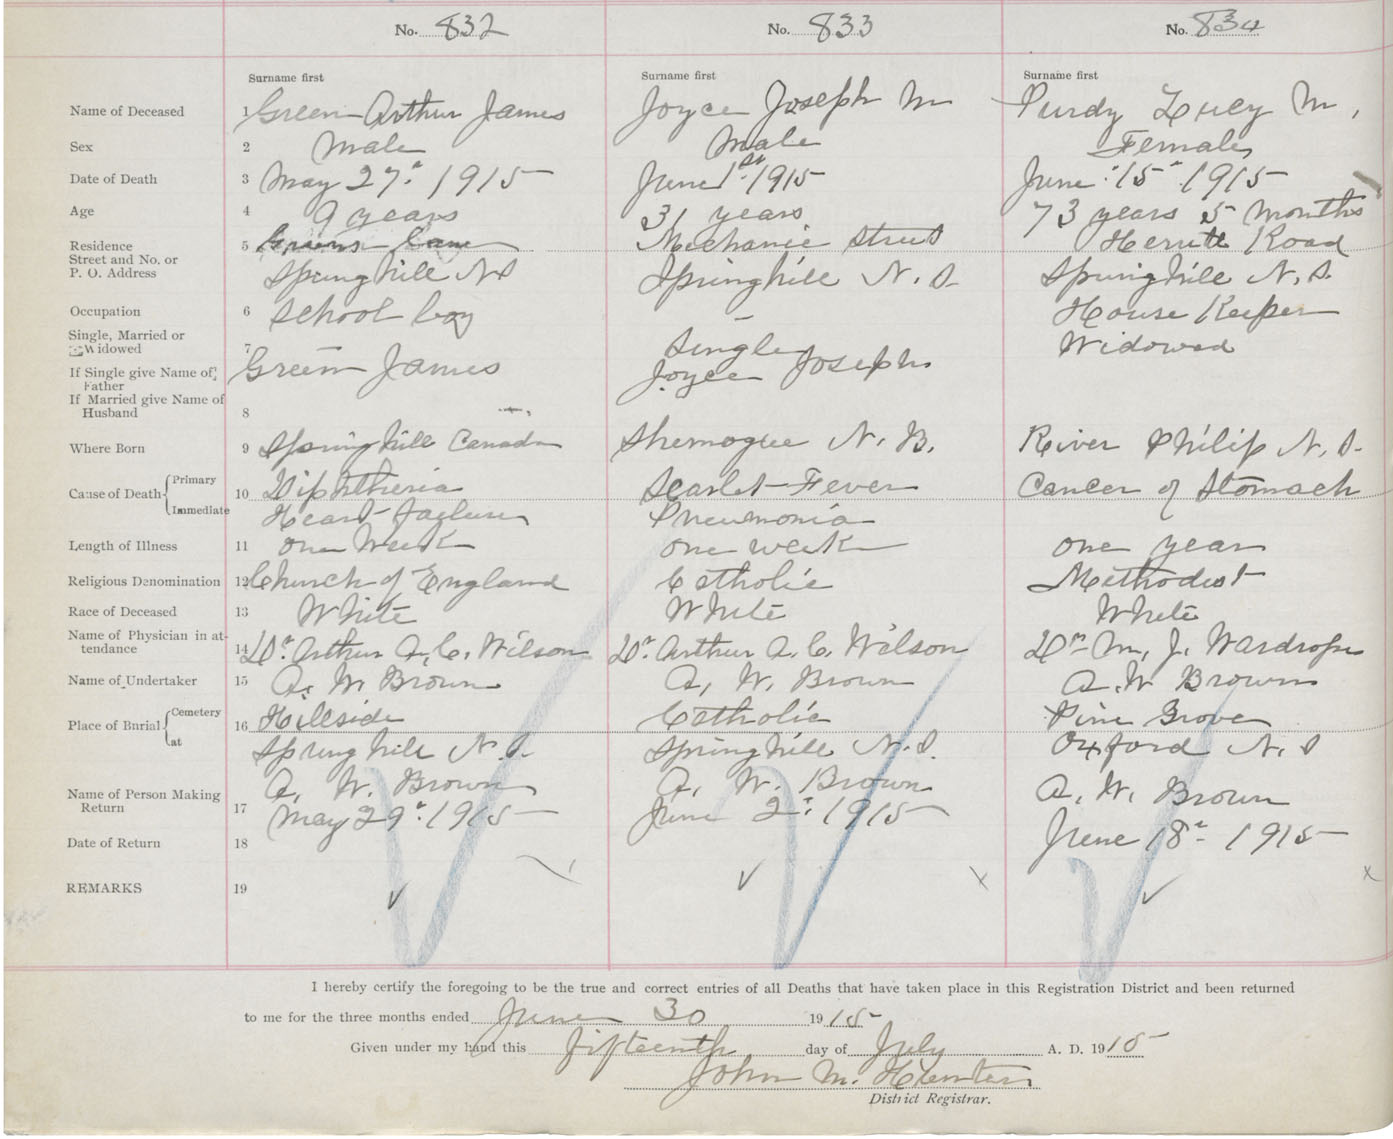 No. 832 No. 833 No. 834
Surname first Surname first Surname first
Name of Deceased 1 Green Arthur James Joyce Joseph M Purdy Lucy M,
Sex 2 Male Male Female
Date of Death 3 May 27" 1915 June 1st 1915 June 15" 1915
Age 4 9 years 31 years 73 years 5 months
Residence 5 Greens Lane Mechanic Street Herrett Road
Street and No. or
P. O. Address Springhill NS Springhill N.S. Springhill N.S.
Occupation 6 School boy – House Keeper
Single, Married or
Widowed 7 – Single Widowed
If Single give Name of Father Green James Joyce Joseph
If Married give Name of
Husband 8
Where Born 9 Springhill Canada Shemogue N.B. River Philip N.S.
Cause of Death Primary 10 Diphtheria Scarlet Fever Cancer of Stomach
Immediate Heart failure Pneumonia
Length of Illness 11 one Week one week one year
Religious Denomination 12 Church of England Catholic Methodist
Race of Deceased 13 White White White
Name of Physician in at-
tendance 14 Dr. Arthur A. C. Wilson Dr. Arthur A. C. Wilson Dr M. J. Wardrope
Name of Undertaker 15 A. W. Brown A. W. Brown A. W Brown
Place of Burial Cemetery 16 Hillside Catholic Pine Grove
at Springhill N.S. Springhill N.S. Oxford N.S
Name of Person Making
Return 17 A. W. Brown A. W. Brown A. W. Brown
Date of Return 18 May 29" 1915 June 2" 1915 June 18" 1915
REMARKS 19
I hereby certify the foregoing to be the true and correct entries of all Deaths that have taken place in this Registration District and been returned
to me for the three months ended June 30 1915
Given under my hand this fifteenth day of July A. D. 1915
John M. Hunter
District Registrar.